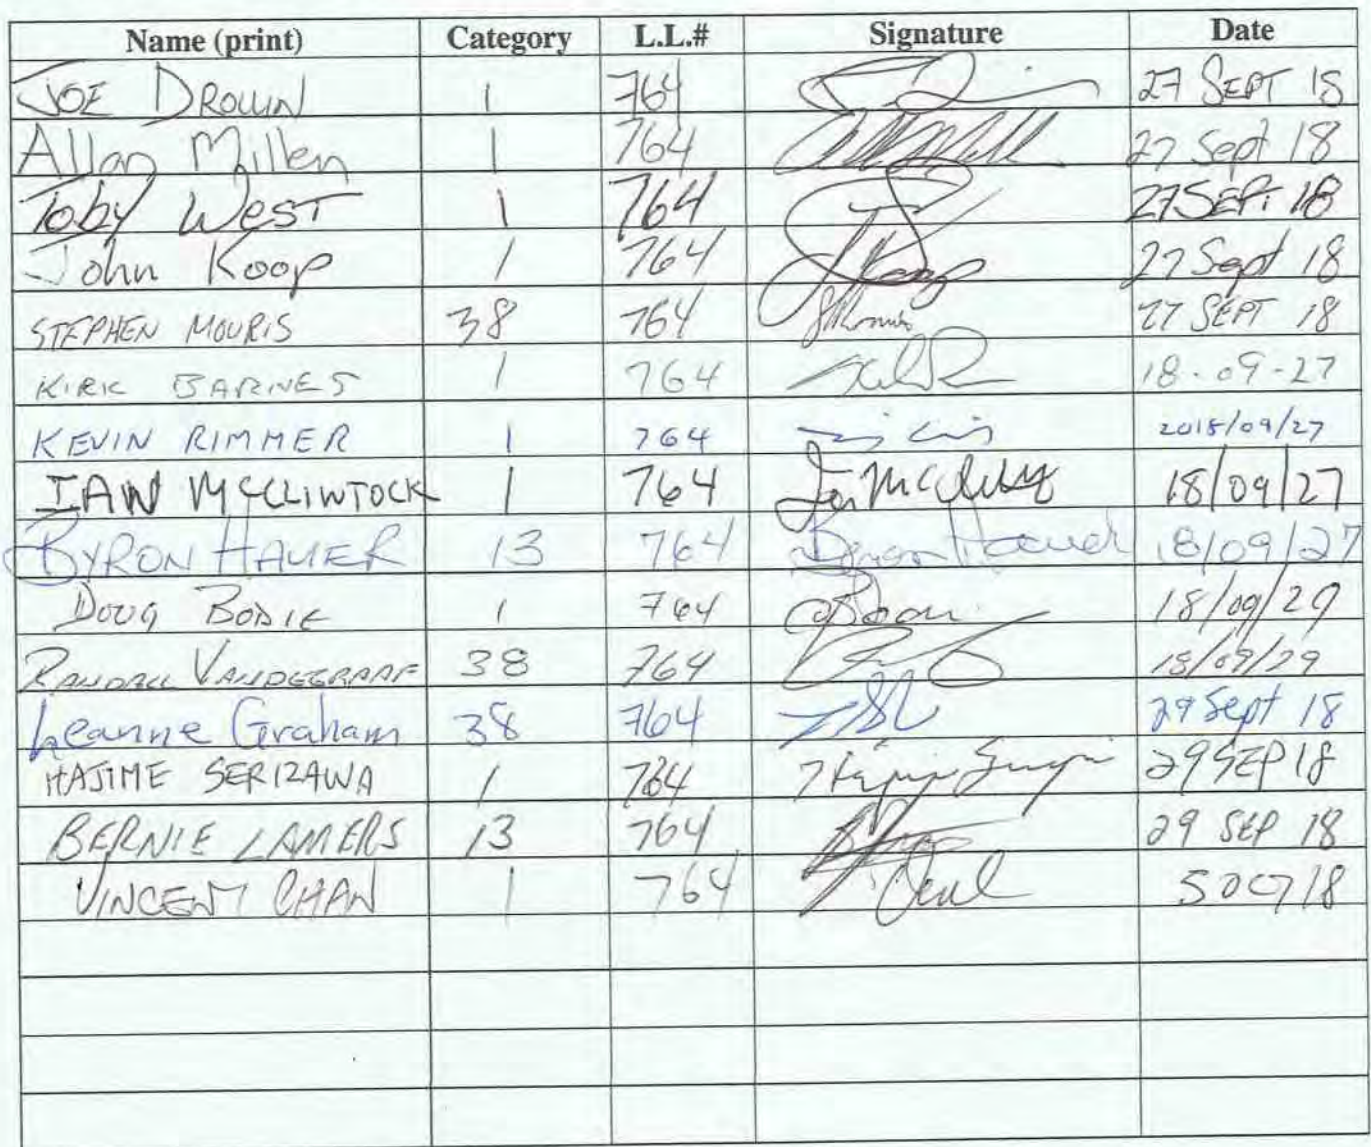 Name (print) Category L.L.# Signature Date
JOE DROUIN 1 764 27 SEPT 18
Allan Millen 1 764 27 Sept 18
Toby West 1 764 27 SEPT. 18
John Koop 1 764 27 Sept 18
STEPHEN MOURIS 38 764 27 SEPT 18
KIRK BARNES 1 764 18-09-27
KEVIN RIMMER 1 764 2018/09/27
IAN McCLINTOCK 1 764 18/09/27
BYRON HAUER 13 764 Byron Hauer 18/09/27
DOUG BODIE 1 764 18/09/29
RANDALL VANDEGRAAF 38 764 18/09/29
Leanne Graham 38 764 29 Sept 18
HAJIME SERIZAWA 1 764 29 SEP 18
BERNIE LAMERS 13 764 29 SEP 18
VINCENT CHAN 1 764 5 OCT 18